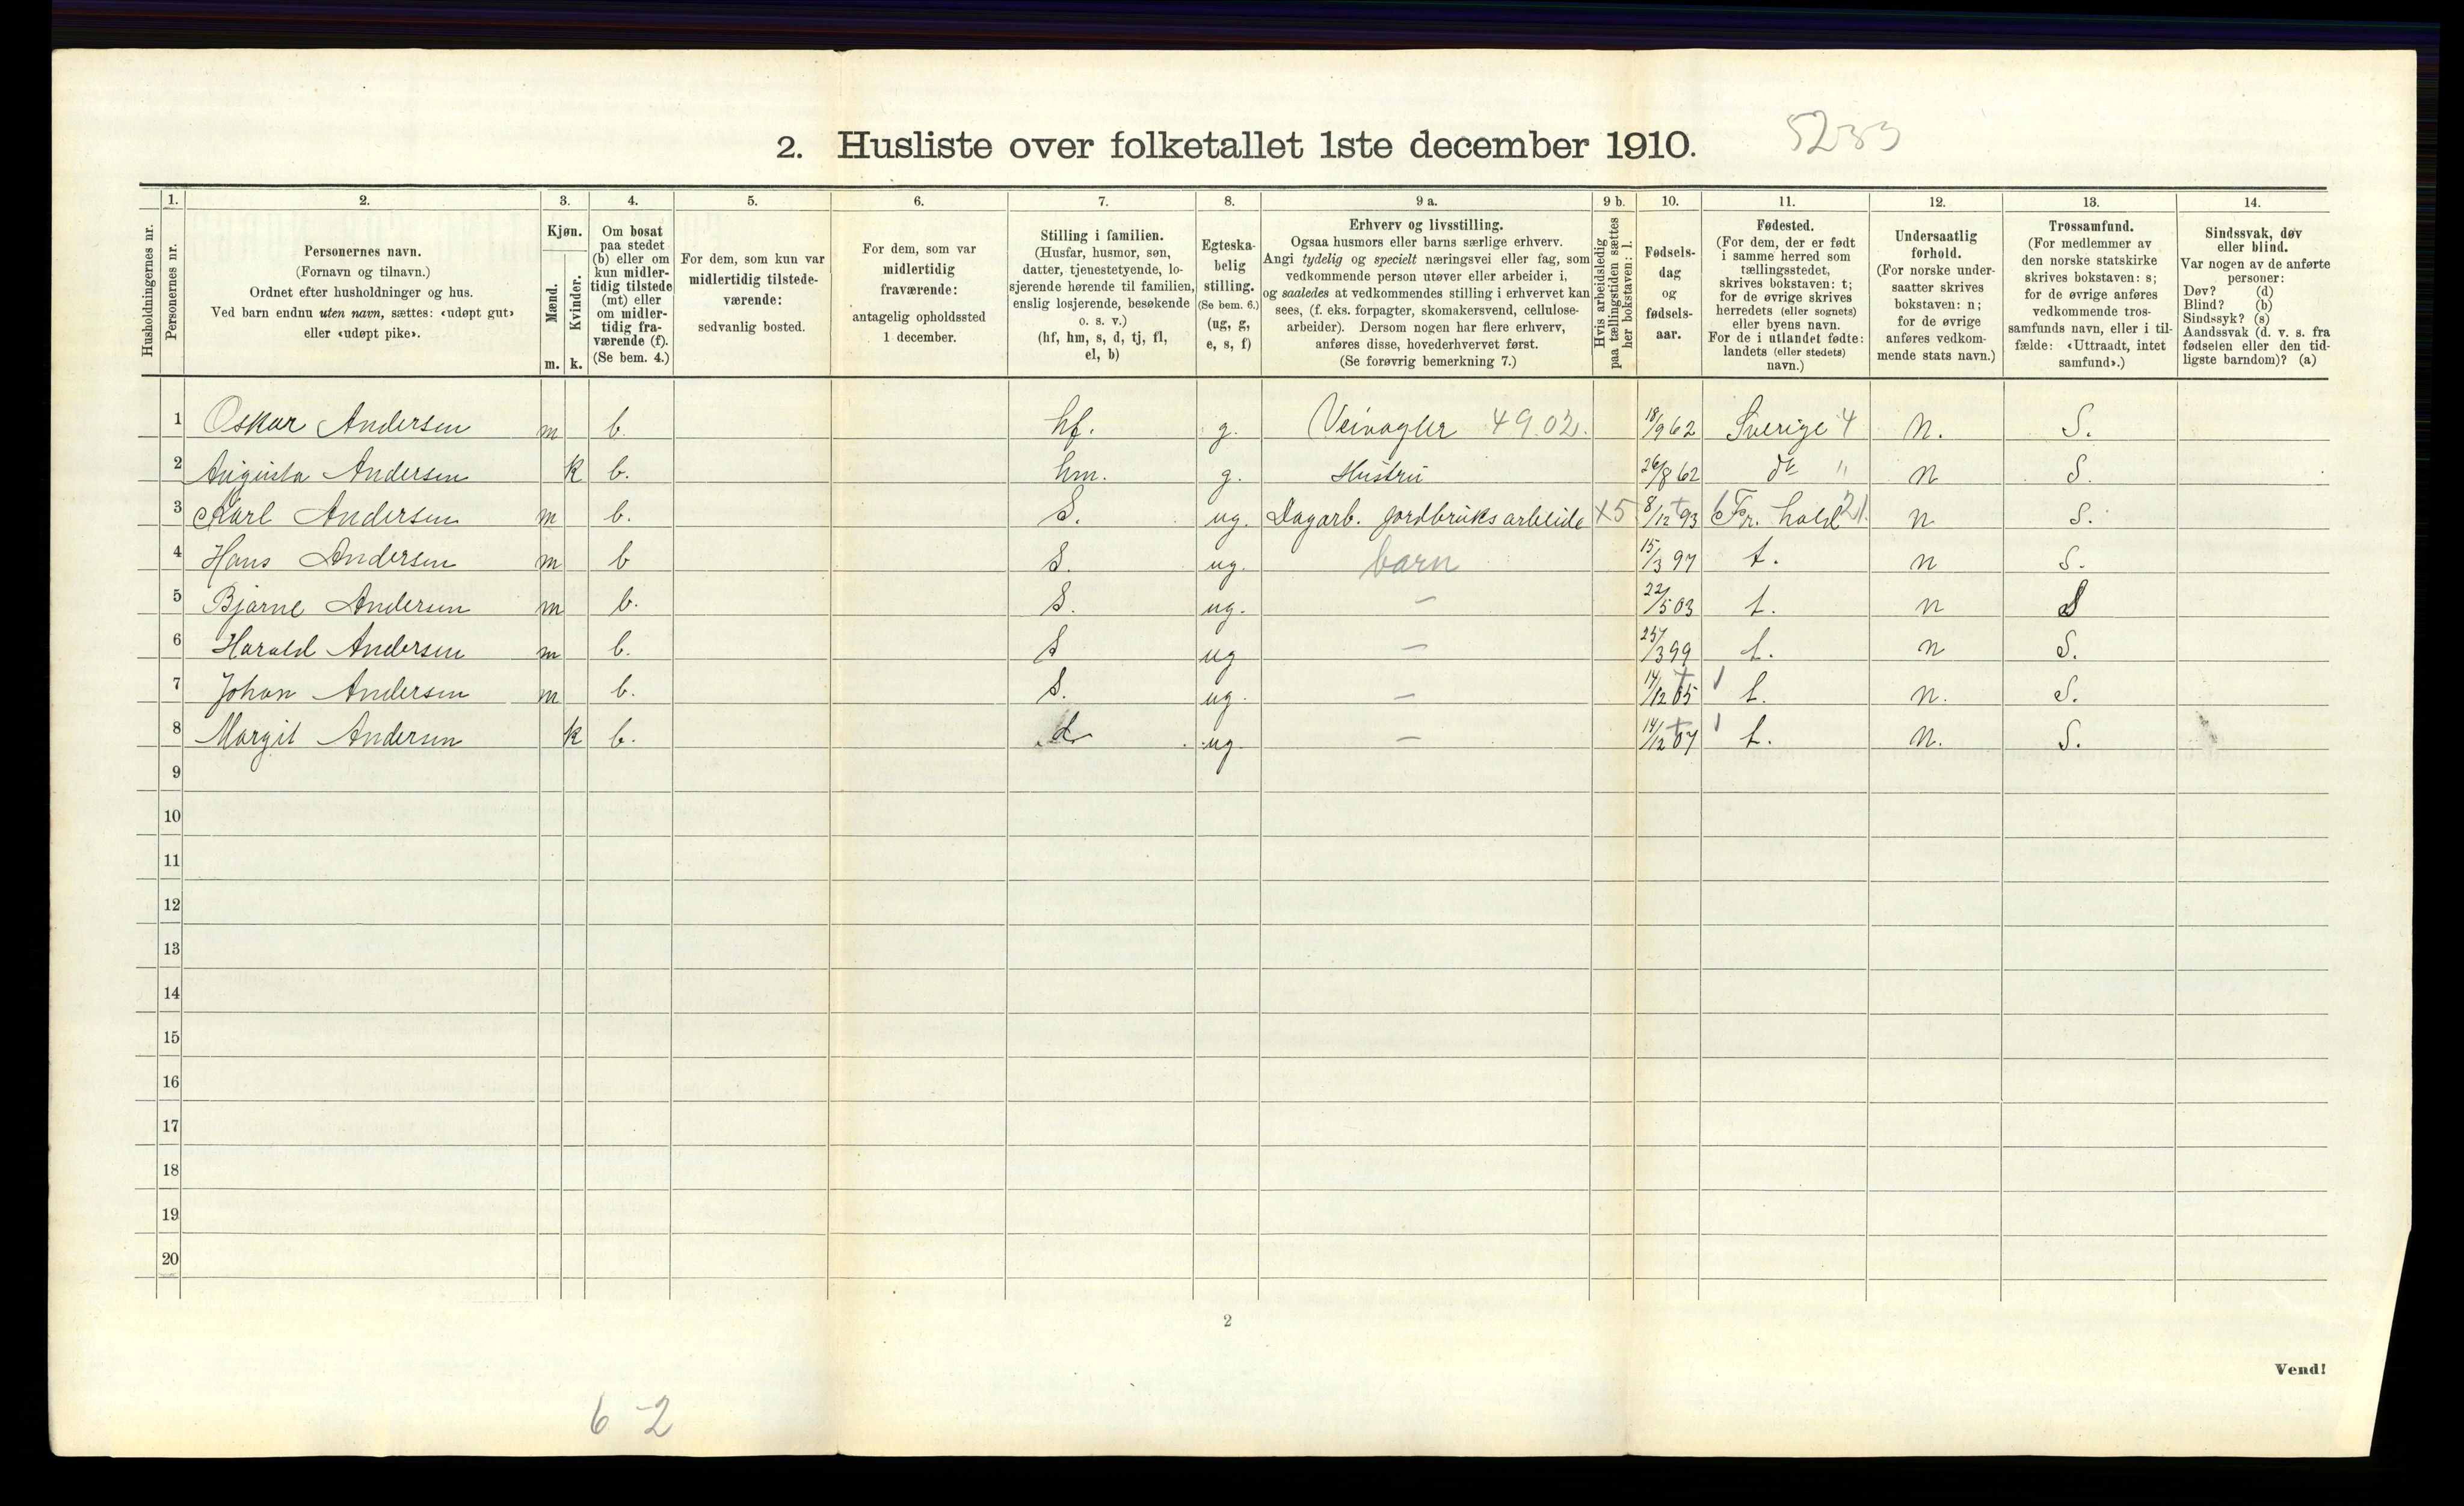 2. Husliste over folketallet 1ste december 1910.
5233
1. 2. 3. 4. 5. 6. 7. 8. 9 a. 9 b. 10. 11. 12. 13. 14.
Husholdningernes nr.
Personernes nr.
Personernes navn.
(Fornavn og tilnavn.)
Ordnet efter husholdninger og hus.
Ved barn endnu uten navn, sættes: «udøpt gut»
eller «udøpt pike».
Kjøn.
Mænd.
Kvinder.
m. k.
Om bosat
paa stedet
(b) eller om
kun midler-
tidig tilstede
(mt) eller
om midler-
tidig fra-
værende (f).
(Se bem. 4.)
For dem, som kun var
midlertidig tilstede-
værende:
sedvanlig bosted.
For dem, som var
midlertidig
fraværende:
antagelig opholdssted
1 december.
Stilling i familien.
(Husfar, husmor, søn,
datter, tjenestetyende, lo-
sjerende hørende til familien,
enslig losjerende, besøkende
o. s. v.)
(hf, hm, s, d, tj, fl,
el, b)
Egteska-
belig
stilling.
(Se bem. 6.)
(ug, g,
e, s, f)
Erhverv og livsstilling.
Ogsaa husmors eller barns særlige erhverv.
Angi tydelig og specielt næringsvei eller fag, som
vedkommende person utøver eller arbeider i,
og saaledes at vedkommendes stilling i erhvervet kan
sees, (f. eks. forpagter, skomakersvend, cellulose-
arbeider). Dersom nogen har flere erhverv,
anføres disse, hovederhvervet først.
(Se forøvrig bemerkning 7.)
Hvis arbeidsledig
paa tællingstiden sættes
her bokstaven: l.
Fødsels-
dag
og
fødsels-
aar.
Fødested.
(For dem, der er født
i samme herred som
tællingsstedet,
skrives bokstaven: t;
for de øvrige skrives
herredets (eller sognets)
eller byens navn.
For de i utlandet fødte:
landets (eller stedets)
navn.)
Undersaatlig
forhold.
(For norske under-
saatter skrives
bokstaven: n;
for de øvrige
anføres vedkom-
mende stats navn.)
Trossamfund.
(For medlemmer av
den norske statskirke
skrives bokstaven: s;
for de øvrige anføres
vedkommende tros-
samfunds navn, eller i til-
fælde: «Uttraadt, intet
samfund».)
Sindssvak, døv
eller blind.
Var nogen av de anførte
personer:
Døv? (d)
Blind? (b)
Sindssyk? (s)
Aandssvak (d. v. s. fra
fødselen eller den tid-
ligste barndom)? (a)
1 Oskar Andersen m b. hf. g. Veivogter 49.02. 18/9 62 Sverige 4 n. S.
2 Augusta Andersen k b. hm. g. Hustru 26/8 62 do " n S.
3 Karl Andersen m b. S. ug. Dagarb. jordbruksarbeide X5 8/12 93 Fr. hald 21. n S.
4 Hans Andersen m b S. ug. barn 15/3 97 t. n S.
5 Bjarne Andersen m b. S. ug. — 22/5 03 t. n S
6 Harald Andersen m b. S ug — 25/3 99 t. n S.
7 Johan Andersen m b. S. ug. — 14/12 05 t. n. S.
8 Margit Andersen k b. d ug. — 14/12 07 t. n. S.
9
10
11
12
13
14
15
16
17
18
19
20
2
Vend!
6-2